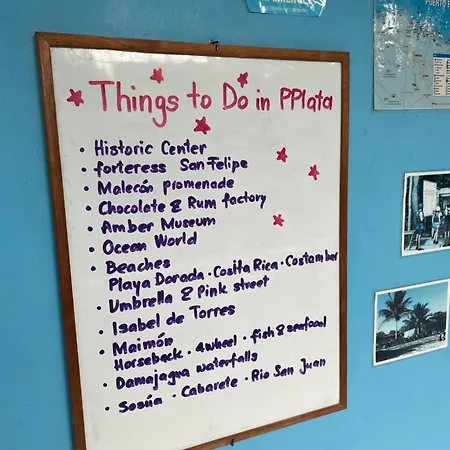 Things to Do in PPlata
• Historic Center
• forteress San Felipe
• Malecón promenade
• Chocolate & Rum factory
• Amber Museum
• Ocean World
• Beaches
Playa Dorada · Cosita Rica · Costambar
• Umbrella & Pink street
• Isabel de Torres
• Maimón
Horseback · 4wheel · fish & seafood
• Damajagua waterfalls
• Sosúa · Cabarete · Rio San Juan
PUERTO